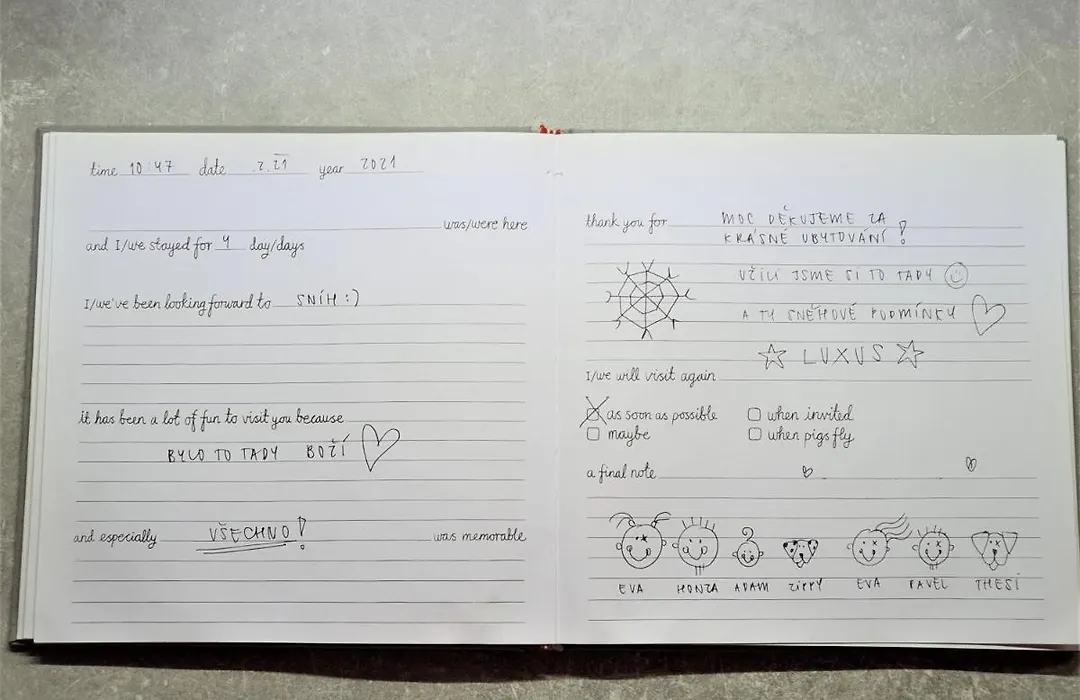 time 10:47 date 2. 21 year 2021
was/were here
and I/we stayed for 4 day/days
I/we've been looking forward to SNÍH :)
it has been a lot of fun to visit you because
BYLO TO TADY BOŽÍ
and especially VŠECHNO! was memorable
thank you for MOC DĚKUJEME ZA
KRÁSNÉ UBYTOVÁNÍ!
UŽILI JSME SI TO TADY
A TY SNĚHOVÉ PODMÍNKY
LUXUS
I/we will visit again
as soon as possible when invited
maybe when pigs fly
a final note
EVA HONZA ADAM ZIPPY EVA PAVEL THESI